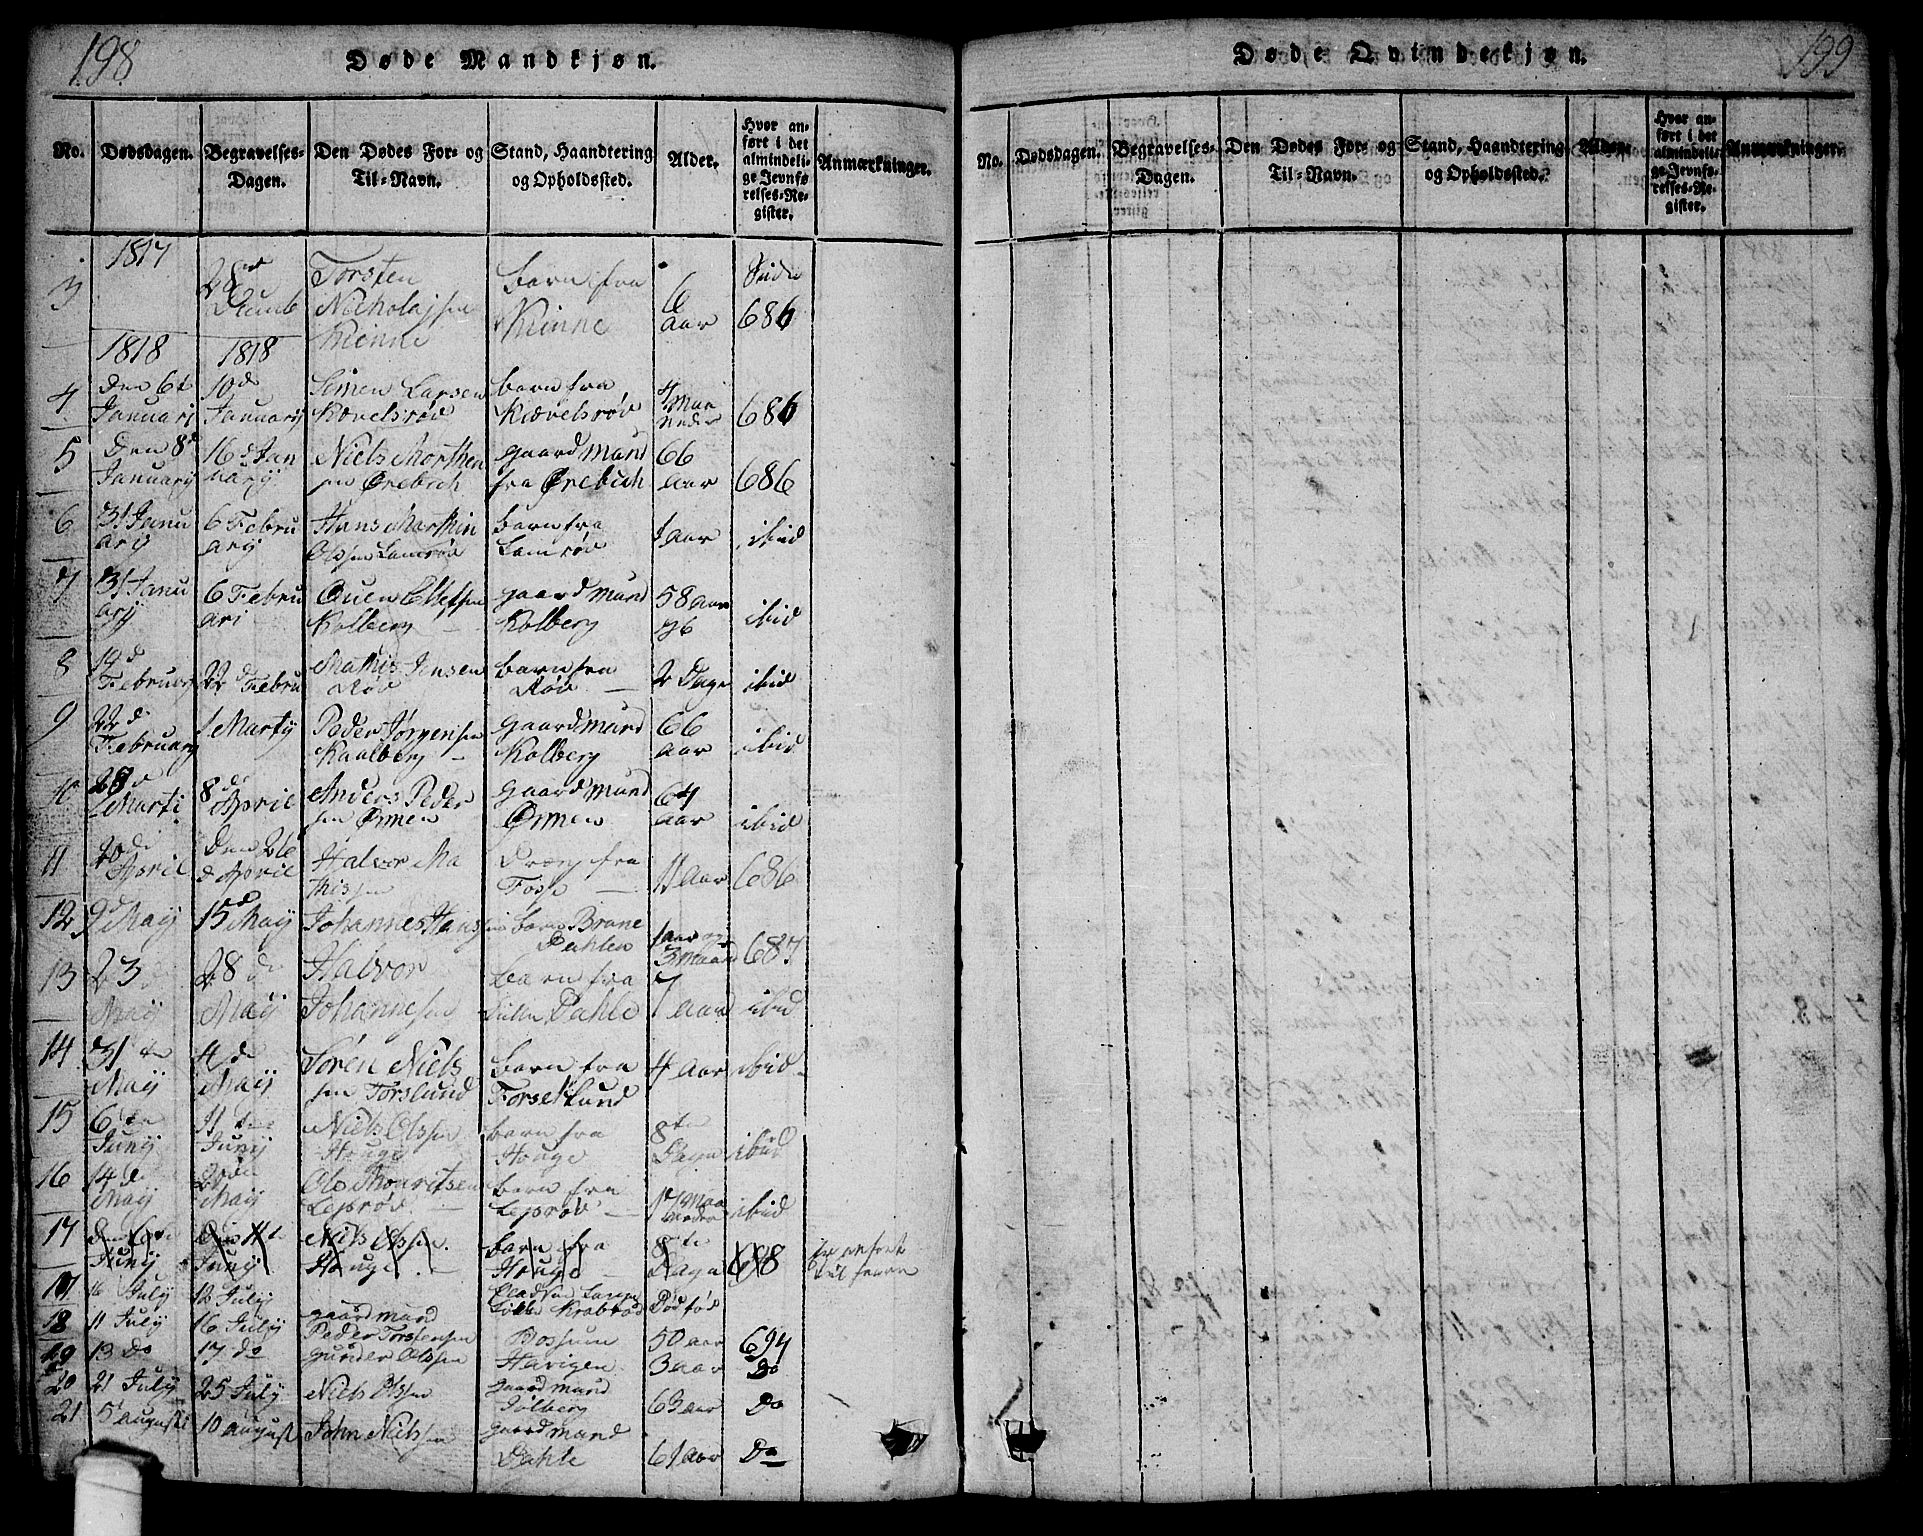 198
Døde Mandkjøn.
No. Dødsdagen. Begravelses-Dagen. Den Dødes For- og Til-Navn. Stand, Haandtering og Opholdssted. Alder. Hvor anført i det almindelige Jevnførelses-Register. Anmærkninger.
1817
3 28de Decemb Torsten Nicholajsen Kinne barn fra Kinne 6 aar Side 686
1818 1818
4 den 6te Januari 10de January Simen Larsen Kævelsrød barn fra Kiævelsrød 4 Maaneder 686
5 Den 8de January 16de January Niels Morthensen Ørebech gaardmand fra Ørebech 66 aar 686
6 31 January 6 February Hans Marthin Olssen Lamrød barn fra Lamrød 1 aar ibid
7 31 January 6 Februari Ouen Ellefsen Kolberg gaardmand Kolberg 58 aar ibid
8 14de February 22de Febru Mathis Jensen Rød barn fra Rød 2 Dage ibid
9 22de February 1 Martij Peder Jørgensen Kaalberg gaardmand Kolberg 66 aar ibid
10 28de Marti 8de April Anders Pedersen Ørmen gaardmand Ørmen 64 aar ibid
11 20de April Den 26de April Halvor Mathissen Dreng fra Fosse 11 aar 686
12 9de Maij 15de Maij Johannes Hanssen barn Brone Dahlen 1 aar og 3 maaned 687
13 23de Maij 28de Maij Halvor Johannesen barn fra Dahle 7 aar ibid
14 31te Maij 4de Maij Søren Nielssen Torslund barn fra Forsetlund 4 aar ibid
15 6te Junij 11te Junij Niels Olssen Houge barn fra Houge 8te Dage ibid
16 14de Maij Maij Ole Mouritsen Lejsrød barn fra Lejsrød Maaneder ibid
17 den 6te Junij Den 11te Junij Niels Olssen Houge barn fra Houge 8te Dage 698 er anført
17 6 July 12 July Krabrød Dødfød
18 11 July 16 July gaardmand Peder Torstensen Bossum 50 aar 694
19 13 Do 17 do Gunder Olssen Havigen 3 aar Do
20 21 July 25 July Niels Olssen gaardmand Jølberg 63 aar Do
21 5 august 10 august John Nielssen gaardmand Dahle 61 aar Do
199
Døde Qvindekjøn.
No. Dødsdagen. Begravelses-Dagen. Den Dødes For- og Til-Navn. Stand, Haandtering og Opholdssted. Alder. Hvor anført i det almindelige Jevnførelses-Register. Anmærkninger.